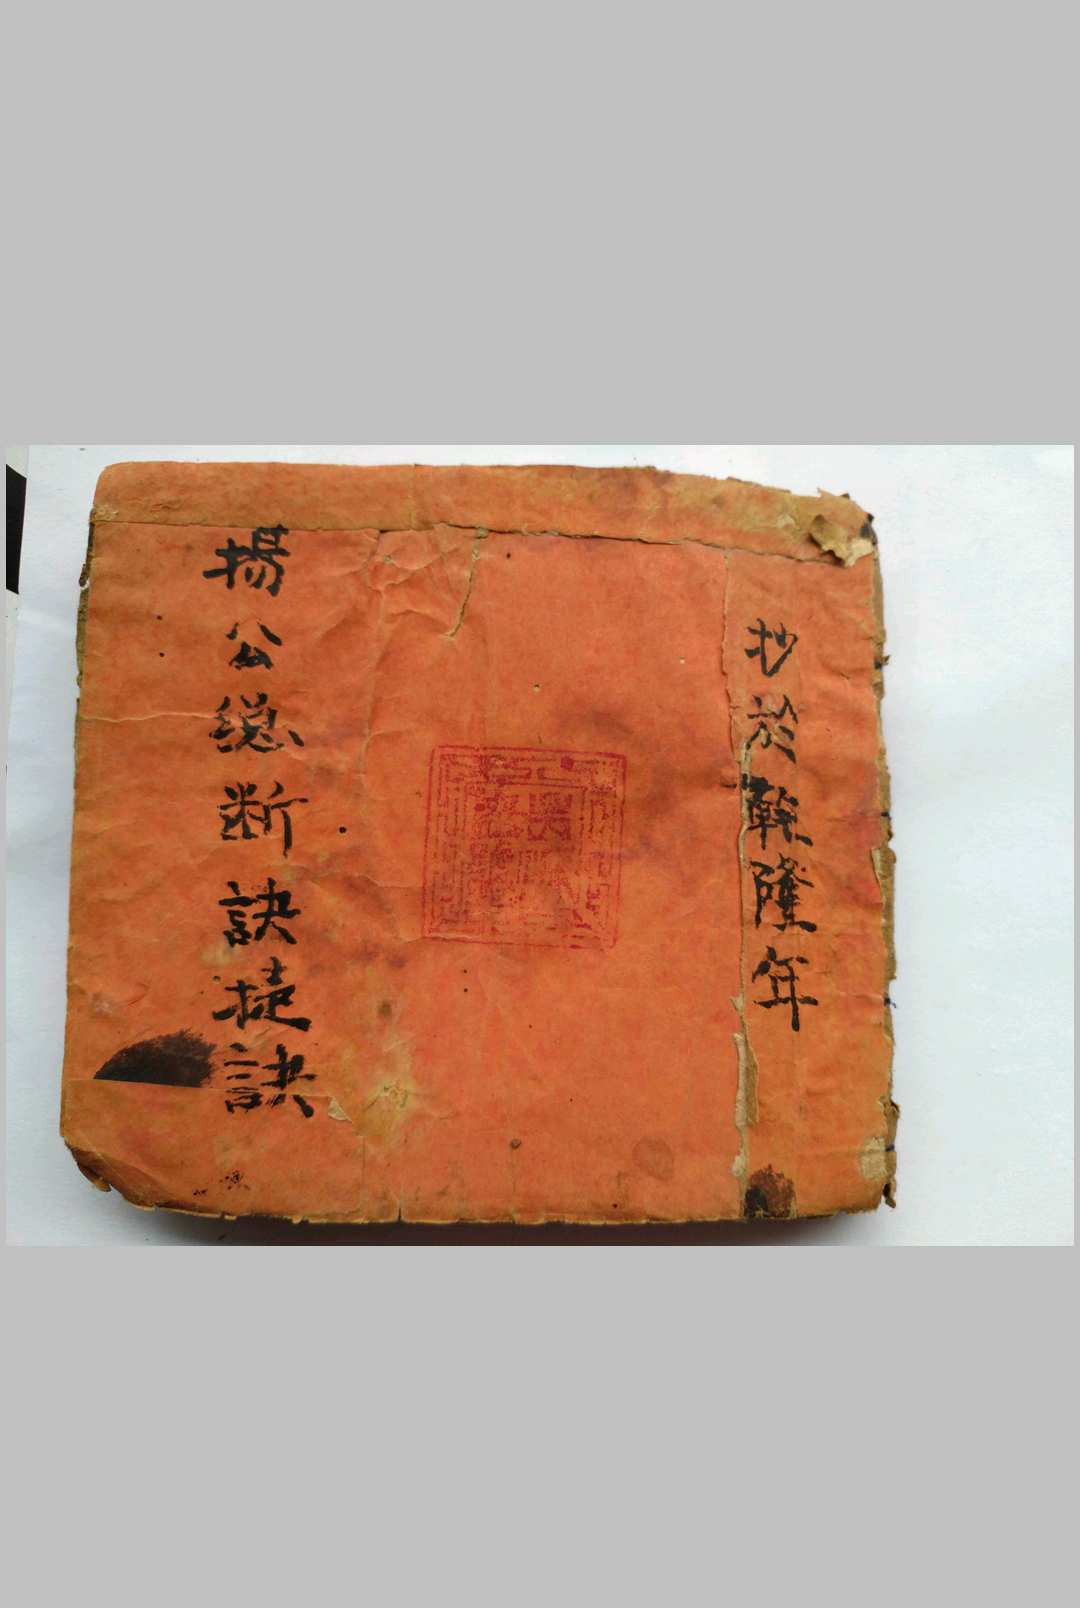 抄於乾隆年
揚公總断訣捷訣